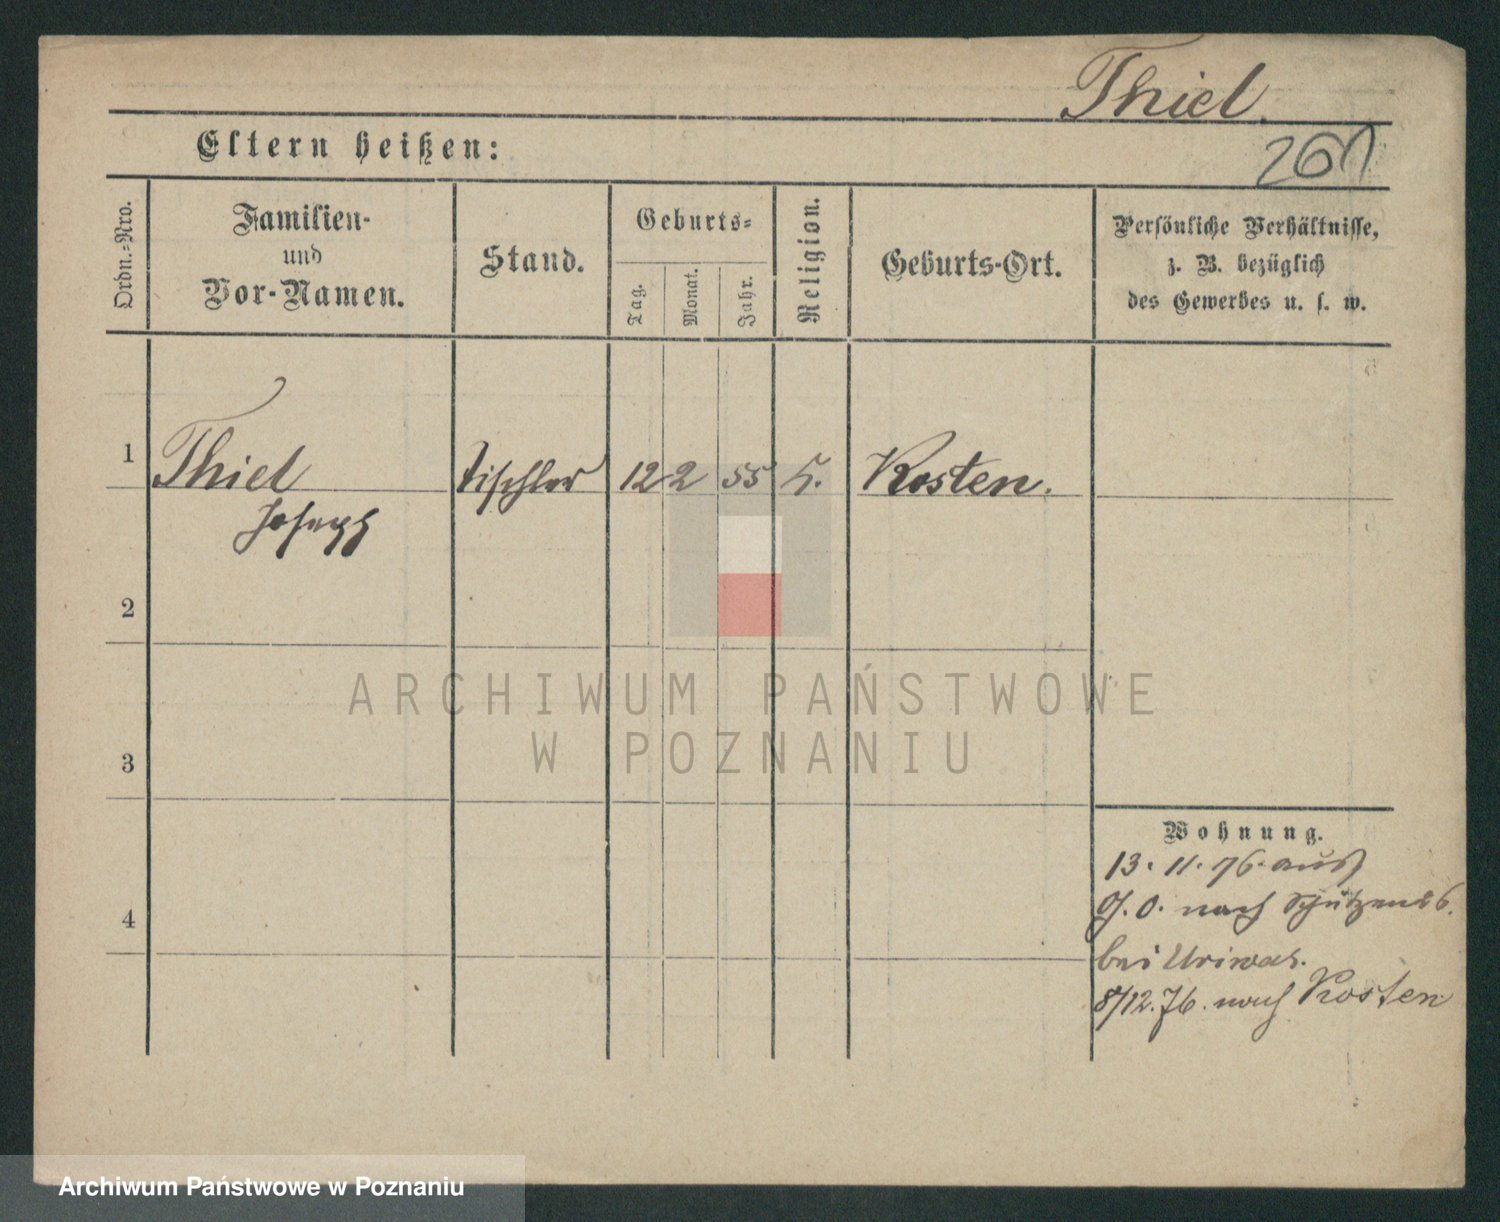 Thiel.
261
Eltern heißen:
Ordn.-Nro.
Familien-
und
Vor-Namen.
Stand.
Geburts-
Tag.
Monat.
Jahr.
Religion.
Geburts-Ort.
Persönliche Verhältnisse,
z. B. bezüglich
des Gewerbes u. s. w.
1
Thiel
Joseph
Tischler
12 2 55
Kosten.
2
3
4
Wohnung.
13. 11. 76. aus
G. O. nach Schützenstr 6.
bei
8/12. 76. nach Kosten
ARCHIWUM PAŃSTWOWE
W POZNANIU
Archiwum Państwowe w Poznaniu